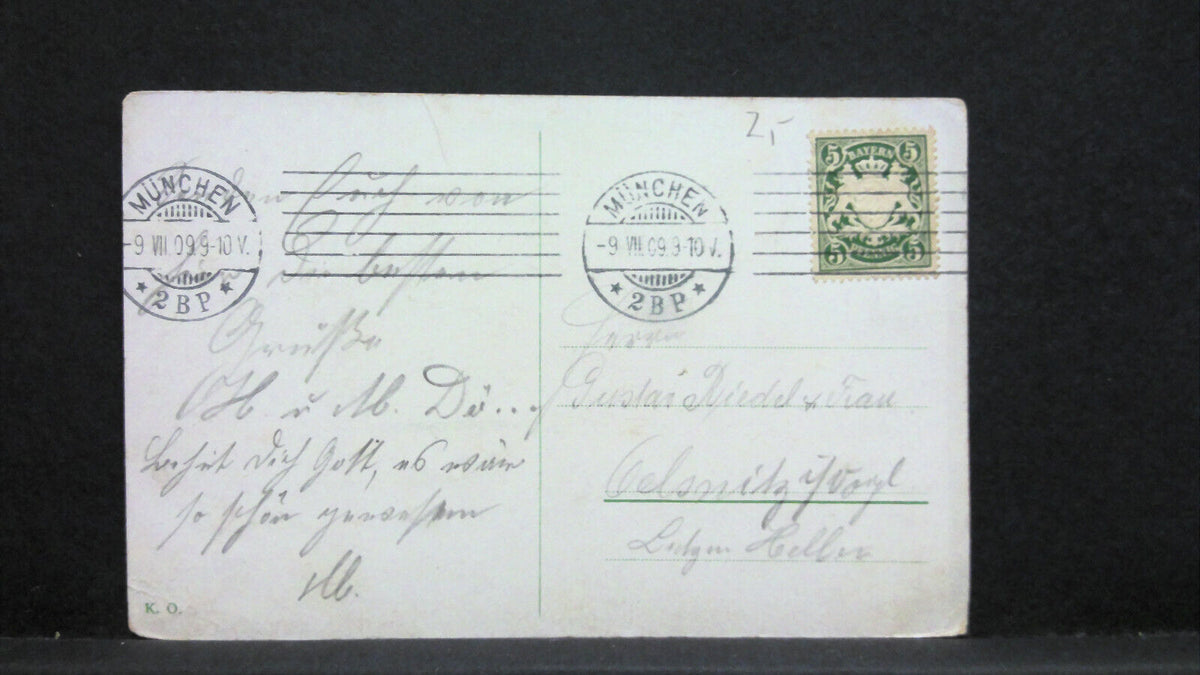 2,-
BAYERN
5 5
5 5
MÜNCHEN
-9 VII.09.9-10 V.
* 2BP *
MÜNCHEN
-9 VII.09.9-10 V.
* 2BP *
Euch von
die besten
Grüße
u M. Dö...
Behüt Dich Gott, es wär
so schön gewesen
M.
K. O.
Herrn
Gustav Riedel & Frau
Oelsnitz i/Vogl